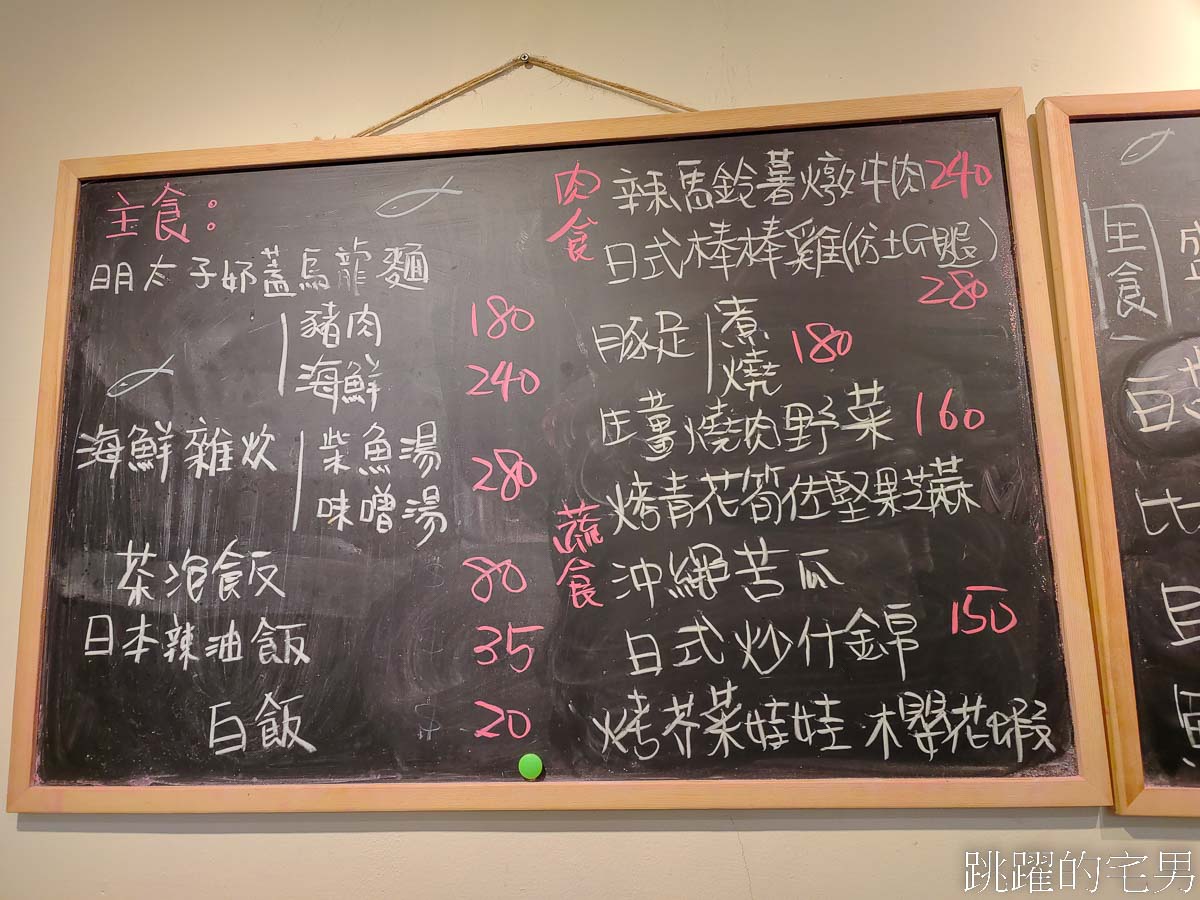 主食:
明太子奶蓋烏龍麵
豬肉 180
海鮮 240
海鮮雜炊
柴魚湯
味噌湯
280
茶泡飯 80
日本辣油飯 35
白飯 $ 20
肉食
辣馬鈴薯燉牛肉 240
日式棒棒雞(仿土G腿)
280
豚足
煮
燒
180
生薑燒肉野菜 160
蔬食
烤青花筍佐堅果芝蔴
沖繩苦瓜
150
日式炒什錦
烤芥菜娃娃 櫻花蝦
生食
比
跳躍的宅男